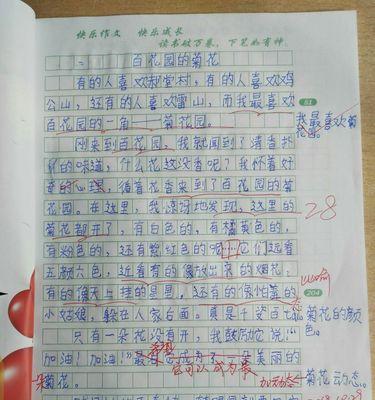 快乐作文 快乐成长
读书破万卷，下笔如有神
百花园的菊花
有的人喜欢郝堂村，有的人喜欢鸡
公山，还有的人喜欢雪山，而我最喜欢
百花园的一角——菊花园。
我最喜欢菊花园。
刚来到百花园，我就闻到了清香扑
的味道，什么花这没香呢？我怀着好
奇的心理，循着花香来到了百花园的菊
花园。在这里，我惊讶地发现，这里的
菊花都开了，有白色的，有橘黄色的，
有粉色的，还有紫红色的呢…它们远看
五颜六色，近看有的像放出来的烟花，
有的像天上挂的星星，还有的像怕羞的
小姑娘，躲在人家后面。真是千姿百态
菊花的颜色。
只有一朵花没有开，我鼓励它说：“
加油！加油！”最后它成为了一朵美丽的
菊花。
它可以成为最
加动态
菊花动态。
28
84
204